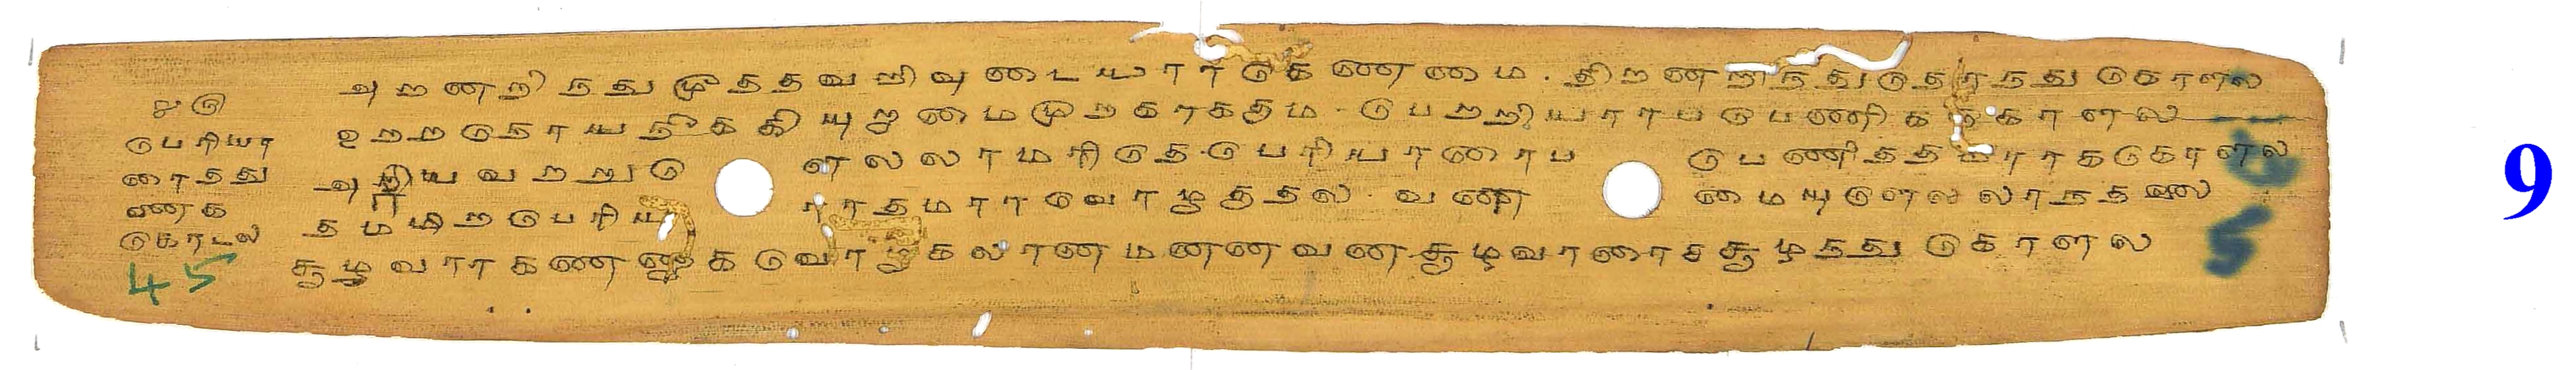 ௪௫
பெரியா
ரைதது
ணைக
கொடல
45
அறனறிநதுமூததவறிவுடையாரகெணமை. திறனறிநதுதெரநதுகொளல
உறறநொயநீககியுறாமைமுறகாககும. பெறறியாரபபெணிககொளல
அரியவறறு ளெலலாமரிதெ. பெரியாரைப பெணிததமராககொளல
தமமிறபெரியா ராதமராவொழுததல. வனை மையுளெலலாநதலை
சூழவாரகணணாகவொழுகலானமனனவனசூழவாரைசசூழநதுகொளல
9